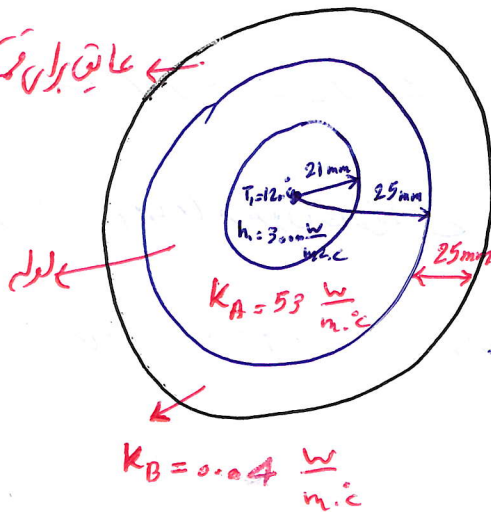 عایق برای
21 mm
T₁=120°C
25 mm
h₁ = 3000 w/m².c
25 mm
لوله
K_A = 53 w/m.°c
K_B = 0.04 w/m.°c